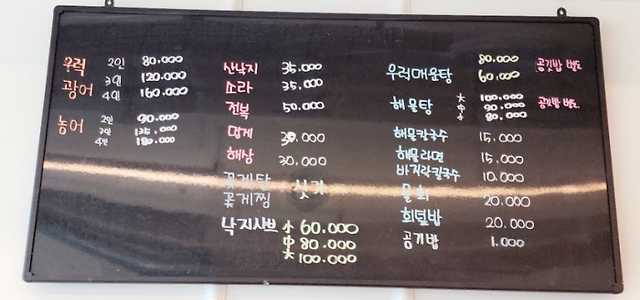 우럭 2인 80.000
광어 3인 120.000
4인 160.000
농어 2인 90.000
3인 135.000
4인 180.000
산낙지 35.000
소라 35.000
전복 50.000
멍게 30.000
해삼 30.000
꽃게탕 싯가
꽃게찜
낙지샤브 小 60.000
中 80.000
大 100.000
우럭매운탕 80.000 공깃밥 별도
60.000
해물탕 大 100.000 공깃밥 별도
中 90.000
小 80.000
해물칼국수 15.000
해물라면 15.000
바지락칼국수 10.000
물회 20.000
회덮밥 20.000
공기밥 1.000